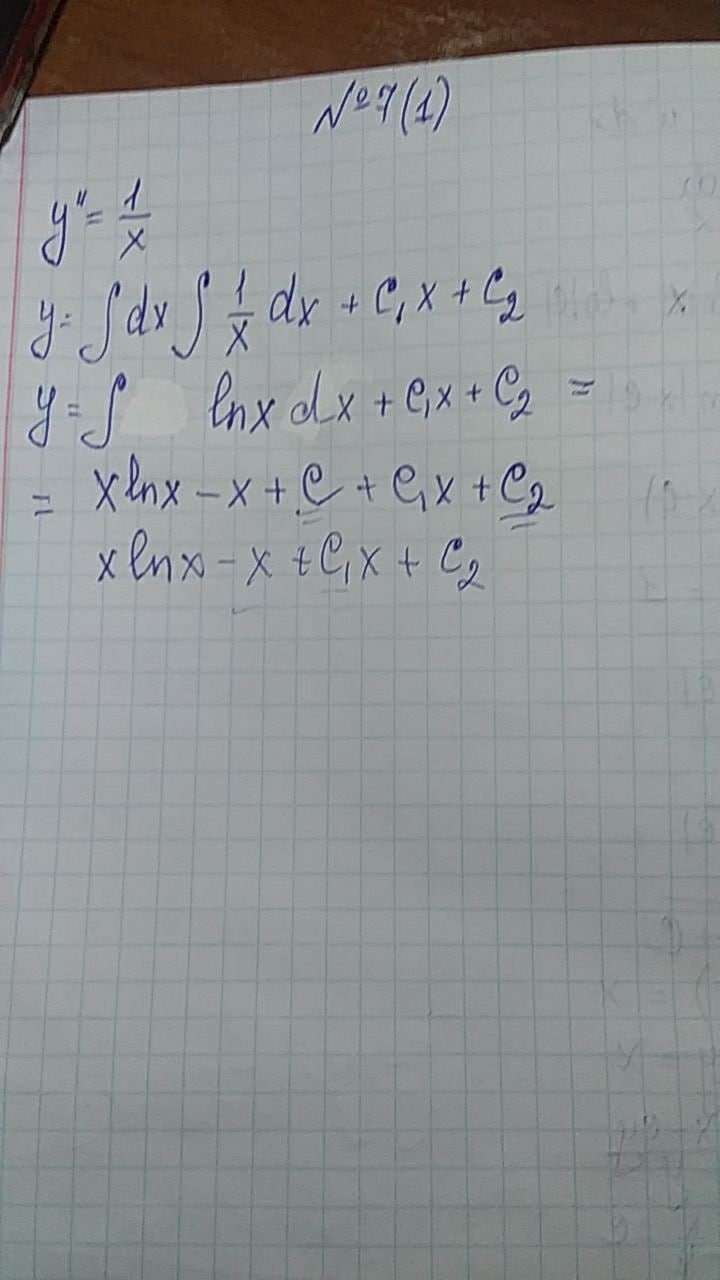 №7(1)
y'' = 1/x
y = ∫dx ∫ 1/x dx + C₁x + C₂
y = ∫ lnx dx + C₁x + C₂ =
= xlnx - x + C + C₁x + C₂
xlnx - x + C₁x + C₂